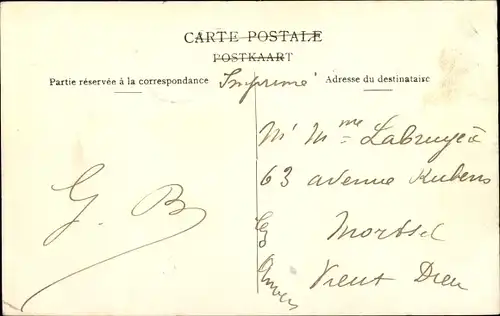 CARTE POSTALE
POSTKAART
Partie réservée à la correspondance
Imprimé
Adresse du destinataire
Mr Mme Labruyère
63 avenue Rubens
Mortsel
Vieux Dieu
Anvers
G. B